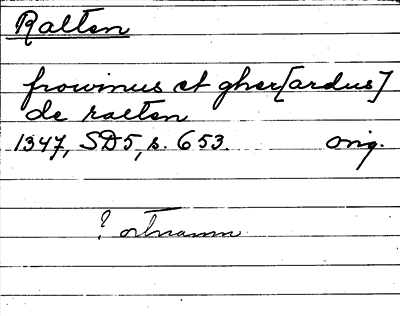 Ralten
frowinus et gher[ardus]
de ralten
1347, SD5, s. 653. orig.
? ortnamn